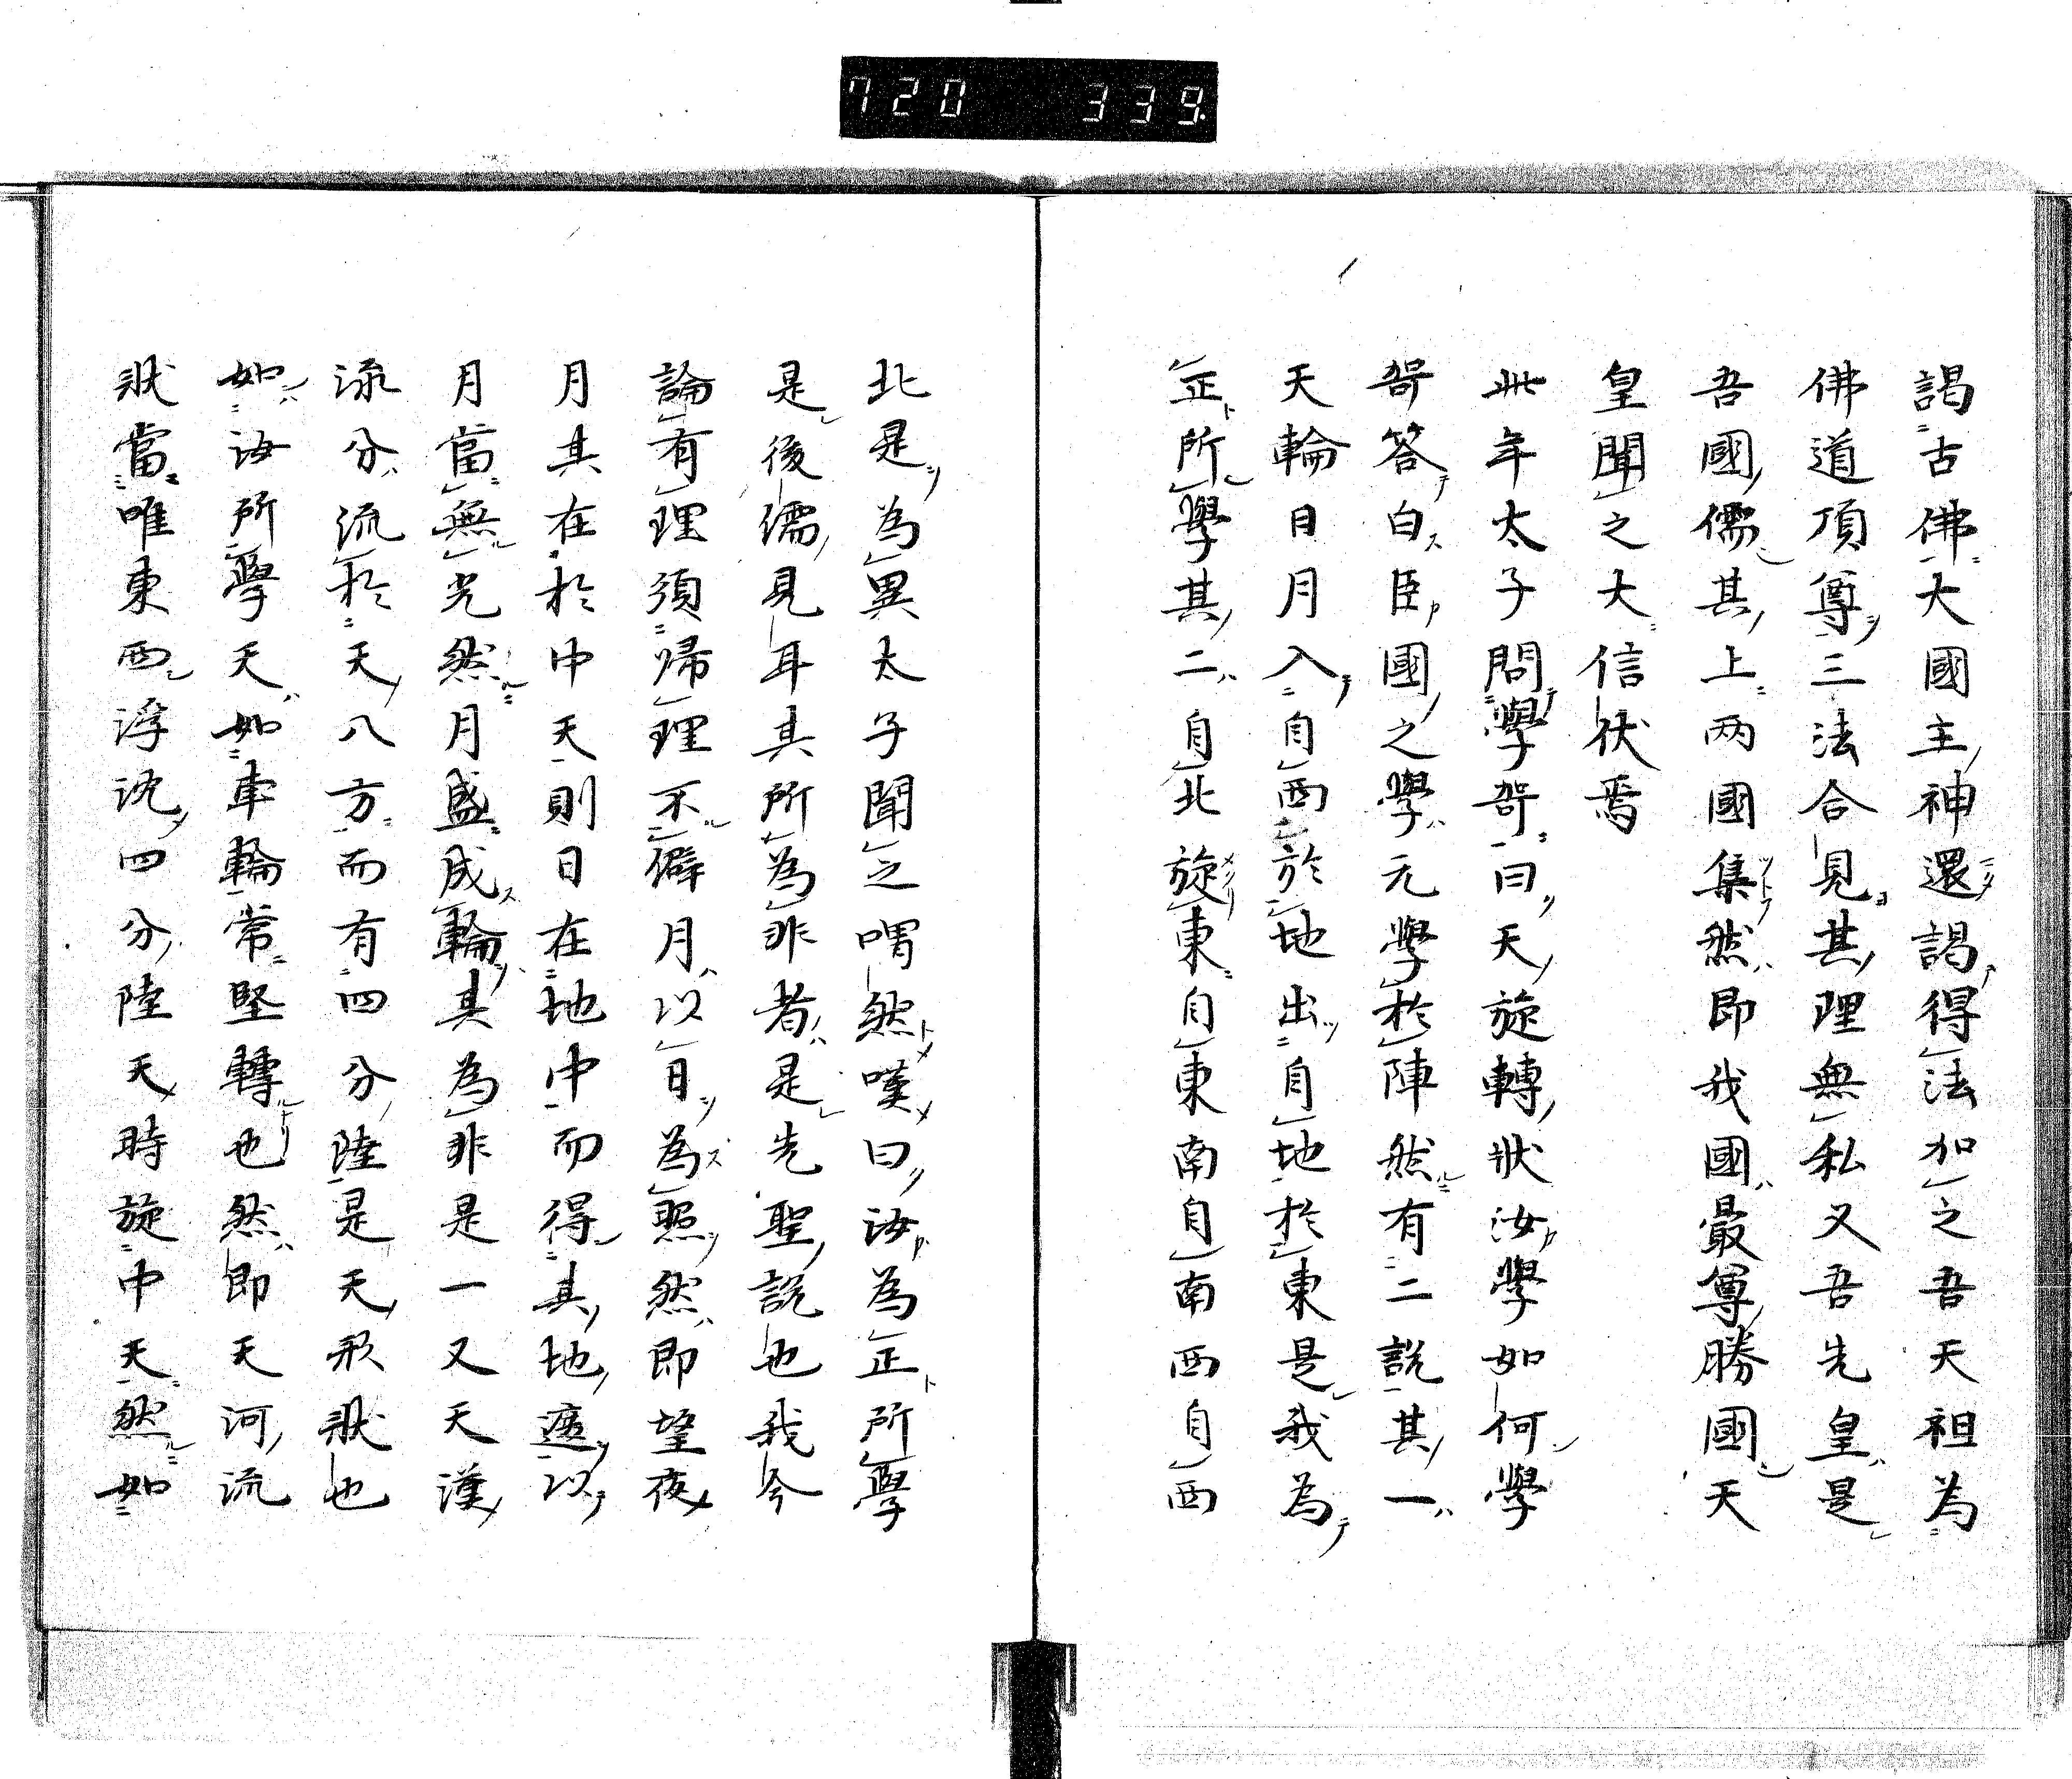 720 339
謁古佛大國主神還謁得法加之吾天祖為
佛道頂尊三法合見其理無私又吾先皇是
吾國儒其上两國集然即我國最尊勝國天
皇聞之大信伏焉
此年太子問學哿曰天旋轉狀汝學如何學
哿答白臣國之學元學於陣然有二說其一
天輪日月入自西於地出自地於東是我為
正所學其二自北旋東自東南自南西自西
北是為異太子聞之喟然嘆曰汝為正所學
是後儒見耳其所為非者是先聖說也我今
論有理須歸理不僻月以日為照然即望夜
月其在於中天則日在地中而得其地遮以
月當無光然月盛成輪其為非是一又天漢
流分流於天八方而有四分陸是天形狀也
如汝所學天如車輪常堅轉也然即天河流
狀當唯東西浮沈四分陸天時旋中天然如